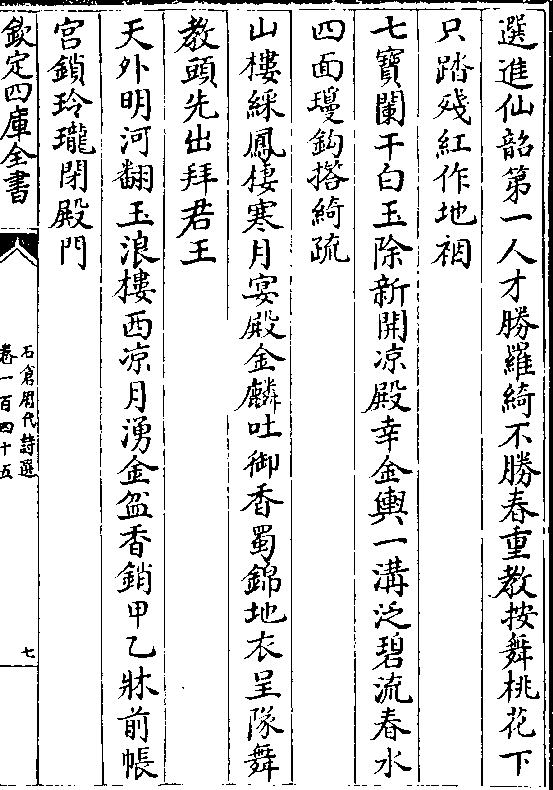 選進仙韶第一人才勝羅綺不勝春重教按舞桃花下
只踏殘紅作地裀
七寶闌干白玉除新開凉殿幸金輿一溝泛碧流春水
四面瓊鈎搭綺疏
山樓綵鳳棲寒月宴殿金麟吐御香蜀錦地衣呈隊舞
教頭先出拜君王
天外明河翻玉浪樓西凉月湧金盆香銷甲乙牀前帳
宫鎖玲瓏閉殿門
欽定四庫全書
石倉歷代詩選
卷一百四十五
七